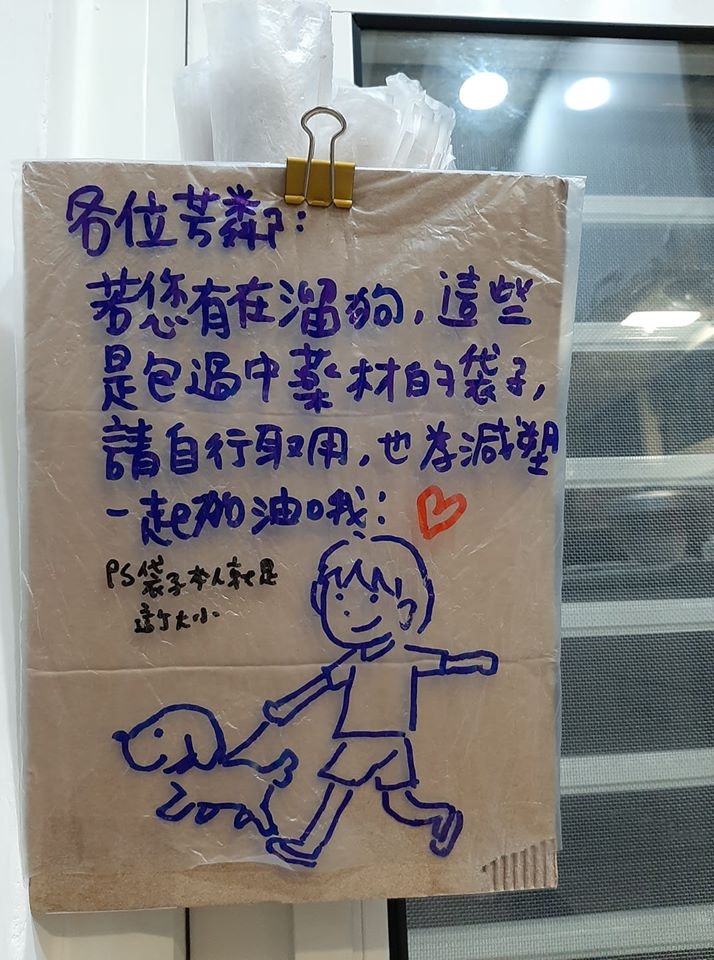 各位芳鄰:
若您有在溜狗,這些
是包過中藥材的袋子,
請自行取用,也為減塑
一起加油哦:
PS袋子本人就是
這个大小